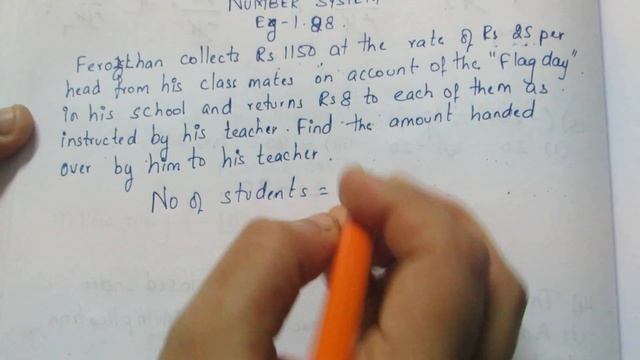 NUMBER SYSTEM
Eg-1.28.
Ferozkhan collects Rs 1150 at the rate of Rs 25 per
head from his class mates on account of the "Flag day"
in his school and returns Rs 8 to each of them as
instructed by his teacher. Find the amount handed
over by him to his teacher.
No of students =